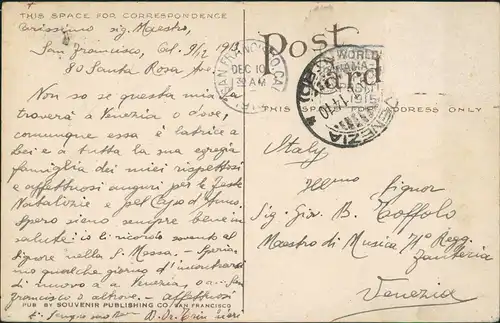 THIS SPACE FOR CORRESPONDENCE
Carissimo sig. Maestro,
San Francisco, Cal. 9/12 1913.
80 Santa Rosa Ave.
Non so se questa mia
troverà a Venezia o dove,
comunque essa è latrice a
Lei e a tutta la sua egregia
famiglia dei miei rispettosi
e affettuosi auguri per le feste
Natalizie e pel Capo d'Anno.
Spero sieno sempre bene in
salute: io li ricordo sovente al
Signore nella S. Messa. - Speria-
mo qualche giorno d'incontrarci
di nuovo o a Venezia, o a San
Francisco o altrove. - Affettuosi
PUB. BY SOUVENIR PUBLISHING CO. SAN FRANCISCO
Post
Card
SAN FRANCISCO, CAL.
DEC 10
AM
WORLD'S
PANAMA
1915
VENEZIA
THIS SPACE FOR ADDRESS ONLY
Italy
Illmo Signor
Sig. Giov. B. Toffolo
Maestro di Musica 71° Regg.
Fanteria
Venezia